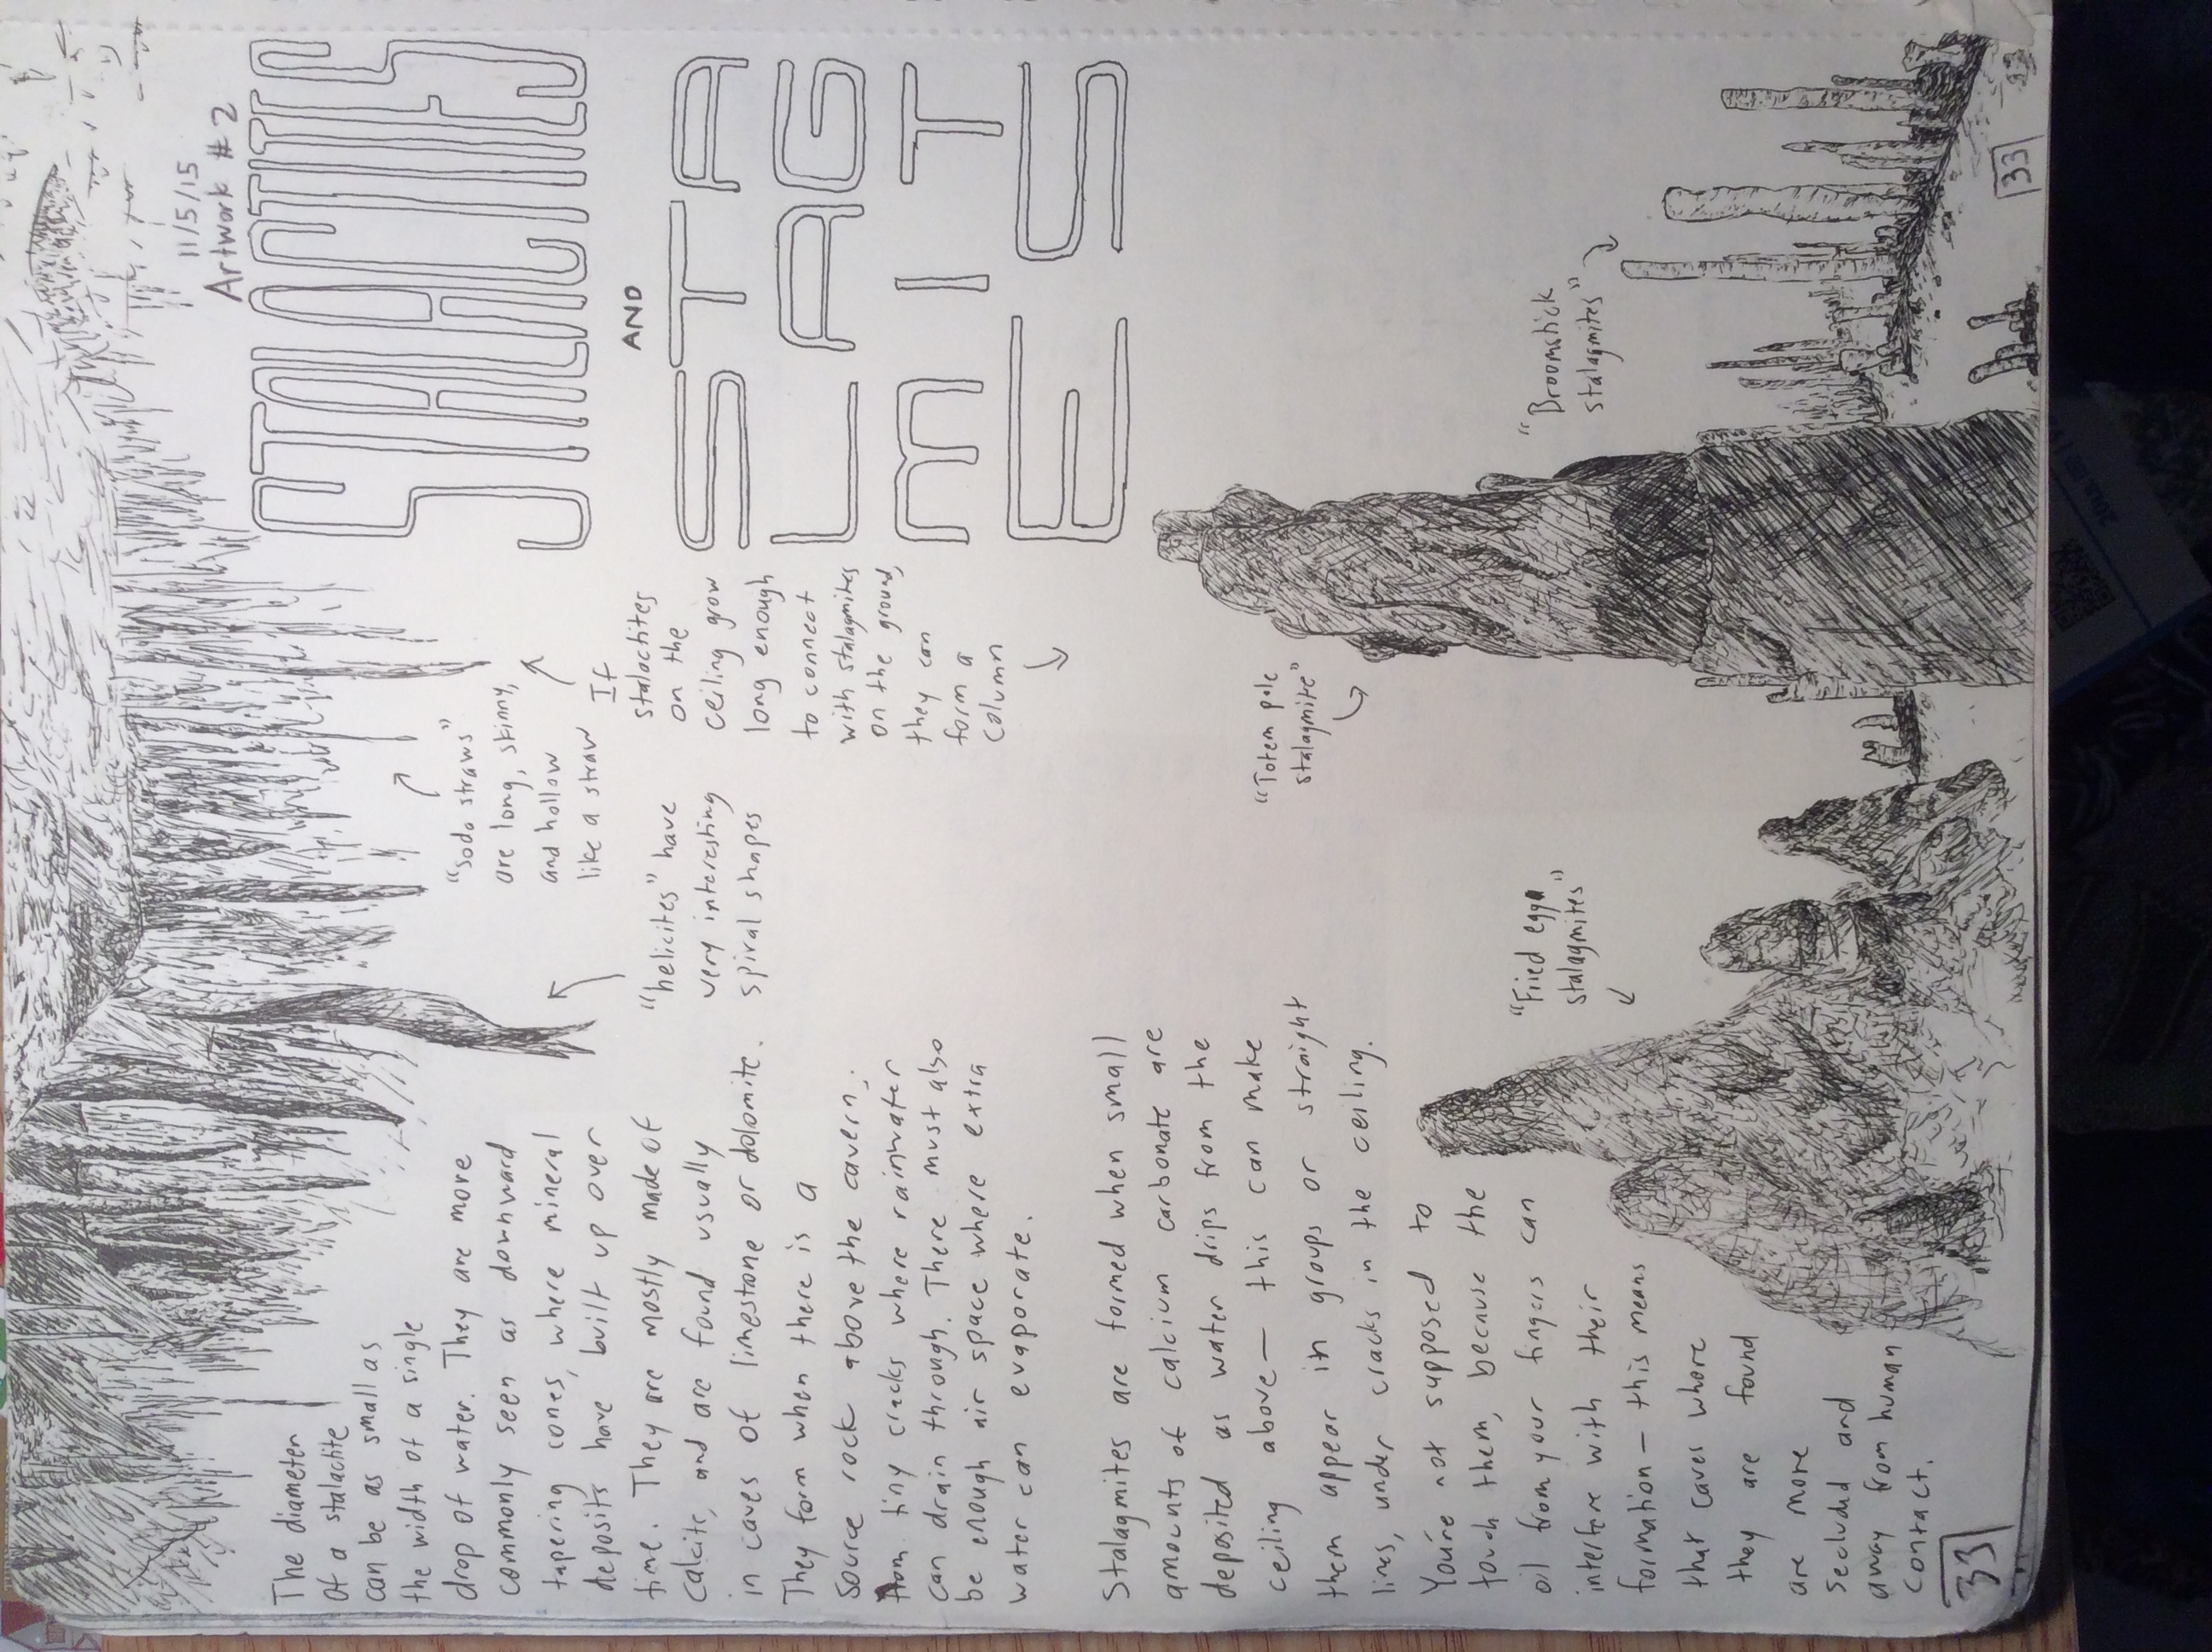 11/5/15
Artwork #2
STALACTITES
AND
STA
LAG
MIT
ES
The diameter
of a stalactite
can be as small as
the width of a single
drop of water. They are more
commonly seen as downward
tapering cones, where mineral
deposits have built up over
time. They are mostly made of
calcite, and are found usually
in caves of limestone or dolomite.
They form when there is a
source rock above the cavern,
from tiny cracks where rainwater
can drain through. There must also
be enough air space where extra
water can evaporate.
"soda straws"
are long, skinny,
and hollow
like a straw
"helicites" have
very interesting
spiral shapes
If
stalactites
on the
ceiling grow
long enough
to connect
with stalagmites
on the ground,
they can
form a
column
Stalagmites are formed when small
amounts of calcium carbonate are
deposited as water drips from the
ceiling above — this can make
them appear in groups or straight
lines, under cracks in the ceiling.
You're not supposed to
touch them, because the
oil from your fingers can
interfere with their
formation — this means
that caves where
they are found
are more
secluded and
away from human
contact.
"Fried egg
stalagmites"
"Totem pole
stalagmite"
"Broomstick
stalagmites"
33
33